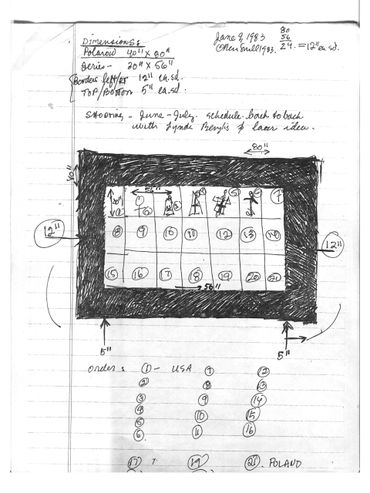 Dimensions:
June 9, 1983
Polaroid 40" x 80"
80
56
24. = 12" ea. sd.
Series - 20" x 56"
Borders left/rt 12" ea. sd.
TOP/Bottom 5" ea. sd.
Shooting - June - July. schedule back to back
with Lynda Benglis & laser idea.
80"
40"
1 2 3 4 5 6 7
12"
8 9 10 11 12 13 14
12"
15 16 17 18 19 20 21
56"
5"
5"
order: 1 - USA 7 12
2 8 13
3 9 14
4 10 15
5
6 11 16
17 ? 19 21. POLAND